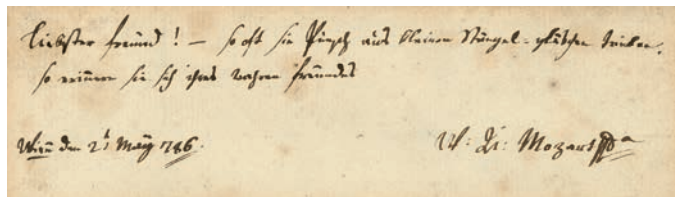 liebster freund ! — so oft sie Punsch aus kleinen Stängel-gläschen trinken,
so erinnern sie sich ihres wahren freundes
Wien den 2t May 786.
W: A: Mozart